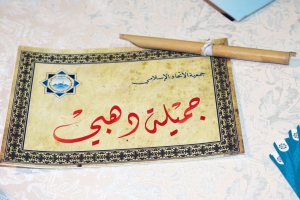 جمعية الاتحاد الإسلامي
جميلة دهبي